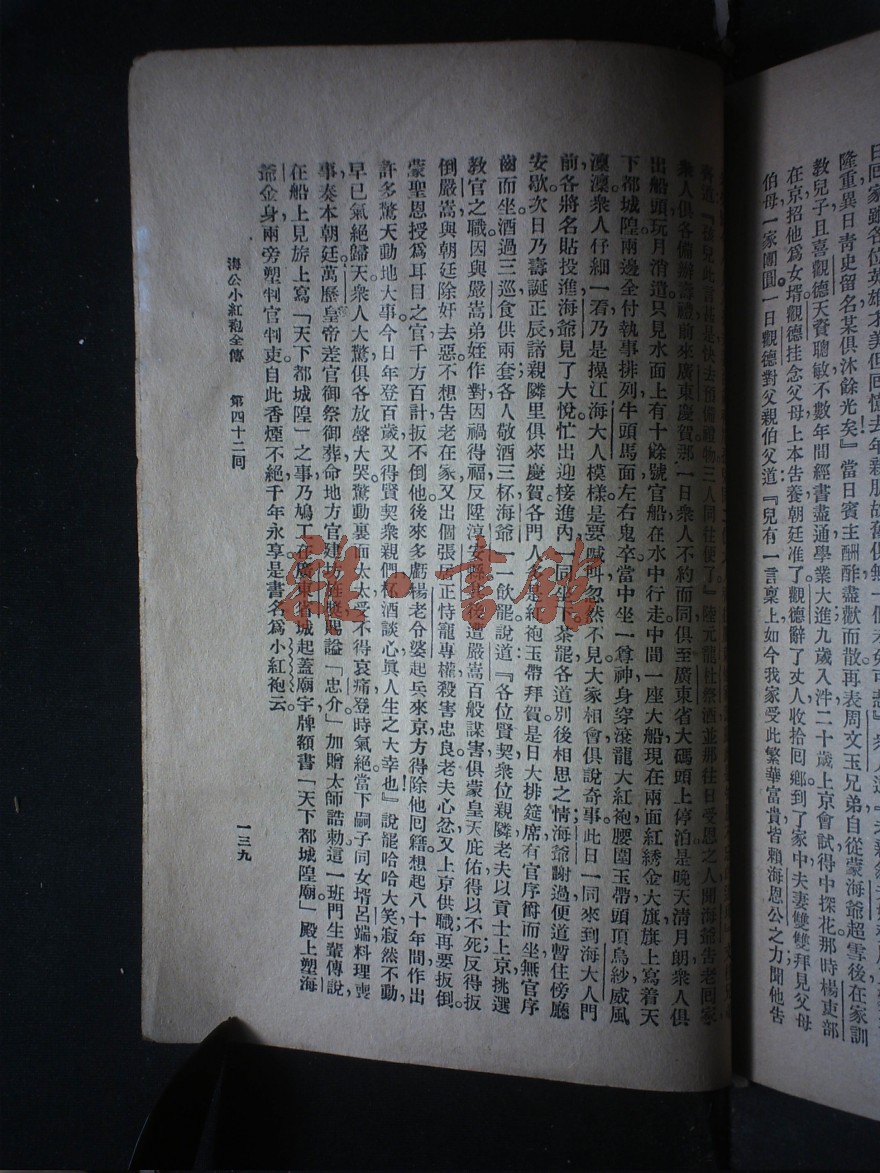 日回家雖各位英雄才美但回憶去年親朋故舊俱無一個未免可
隆重異日青史留名某俱沐餘光矣』當日賓主酬酢盡歡而散再表周文玉兄弟自從蒙海爺超雪後在家訓
教兒子且喜觀德天資聰敏不數年間經書盡通學業大進九歲入泮二十歲上京會試得中探花那時楊吏部
在京招他爲女壻觀德挂念父母上本吿養朝廷准了觀德辭了丈人收拾回鄉到了家中夫妻雙雙拜見父母
伯母一家團圓一日觀德對父親伯父道『兒有一言稟上如今我家受此繁華富貴皆賴海恩公之力聞他吿
道『孩兒此言甚是快去預備禮物三人同往便了』陸元龍杜祭酒並那往日受恩之人聞海爺吿老回家
衆人俱各備辦壽禮前來廣東慶賀那一日衆人不約而同俱至廣東省大碼頭上停泊是晚天清月朗衆人俱
出船頭玩月消遣只見水面上有十餘號官船在水中行走中間一座大船現在兩面紅綉金大旗旗上寫着天
下都城隍兩邊全付執事排列牛頭馬面左右鬼卒當中坐一尊神身穿滾龍大紅袍腰圍玉帶頭頂烏紗威風
凜凜衆人仔細一看乃是操江海大人模樣是要喊叫忽然不見大家相會俱說奇事此日一同來到海大人門
前各將名貼投進海爺見了大悅忙出迎接進內一同坐下茶罷各道別後相思之情海爺謝過便道暫住傍廳
安歇次日乃壽誕正辰諸親隣里俱來慶賀各門人多是紅袍玉帶拜賀是日大排筵席有官序爵而坐無官序
齒而坐酒過三巡食供兩套各人敬酒三杯海爺一一飲罷說道『各位賢契衆位親隣老夫以貢士上京挑選
教官之職因與嚴嵩弟姪作對因禍得福反陞淳安縣此後遭嚴嵩百般謀害俱蒙皇天庇佑得以不死反得扳
倒嚴嵩與朝廷除奸去惡不想吿老在家又出個張居正恃寵專權殺害忠良老夫心忿又上京供職再要扳倒
蒙聖恩授爲耳目之官千方百計扳不倒他後來多虧楊老令婆起兵來京方得除他回籍想起八十年間作出
許多驚天動地大事今日年登百歲又得賢契衆親們杯酒談心眞人生之大幸也』說罷哈哈大笑寂然不動
早已氣絕歸天衆人大驚俱各放聲大哭驚動裏面太太受不得哀痛登時氣絕當下嗣子同女壻呂端料理喪
事奏本朝廷萬曆皇帝差官御祭御葬命地方官建坊旌獎賜諡「忠介」加贈太師誥勅這一班門生輩傳說
在船上見旂上寫「天下都城隍」之事乃鳩工在廣東省城起蓋廟宇牌額書「天下都城隍廟」殿上塑海
爺金身兩旁塑判官判吏自此香煙不絕千年永享是書名爲小紅袍云
海公小紅袍全傳　第四十二回　一三九
雜·書館